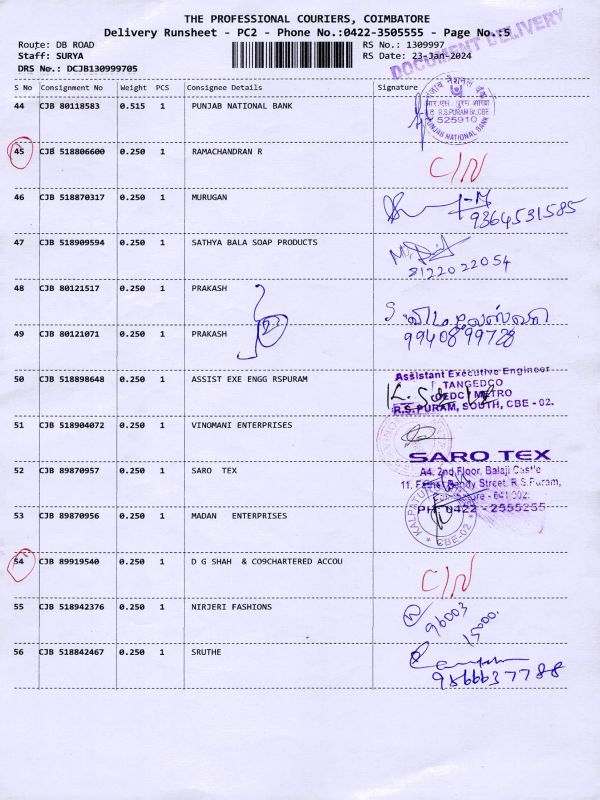 THE PROFESSIONAL COURIERS, COIMBATORE
Delivery Runsheet - PC2 - Phone No.:0422-3505555 - Page No.:5
DOCUMENT DELIVERY
Route: DB ROAD RS No.: 1309997
Staff: SURYA RS Date: 23-Jan-2024
DRS No.: DCJB130999705
S No Consignment No Weight PCS Consignee Details Signature
44 CJB 80118583 0.515 1 PUNJAB NATIONAL BANK
R.S.PURAM Br,CBE
525910
PUNJAB NATIONAL BANK
45 CJB 518806600 0.250 1 RAMACHANDRAN R C/N
46 CJB 518870317 0.250 1 MURUGAN
9364531585
47 CJB 518909594 0.250 1 SATHYA BALA SOAP PRODUCTS
8122022054
48 CJB 80121517 0.250 1 PRAKASH
49 CJB 80121071 0.250 1 PRAKASH 9940899728
50 CJB 518898648 0.250 1 ASSIST EXE ENGG RSPURAM
Assistant Executive Engineer
TANGEDCO
CEDC / METRO
R.S.PURAM, SOUTH, CBE - 02.
51 CJB 518904072 0.250 1 VINOMANI ENTERPRISES
52 CJB 89870957 0.250 1 SARO TEX
SARO TEX
A4, 2nd Floor, Balaji Castle
Street, R.S.Puram,
Coimbatore - 641 002.
PH: 0422 - 2555255
53 CJB 89870956 0.250 1 MADAN ENTERPRISES
CBE-02
54 CJB 89919540 0.250 1 D G SHAH & CO9CHARTERED ACCOU C/N
55 CJB 518942376 0.250 1 NIRJERI FASHIONS
96003
15000.
56 CJB 518842467 0.250 1 SRUTHE
9566637788